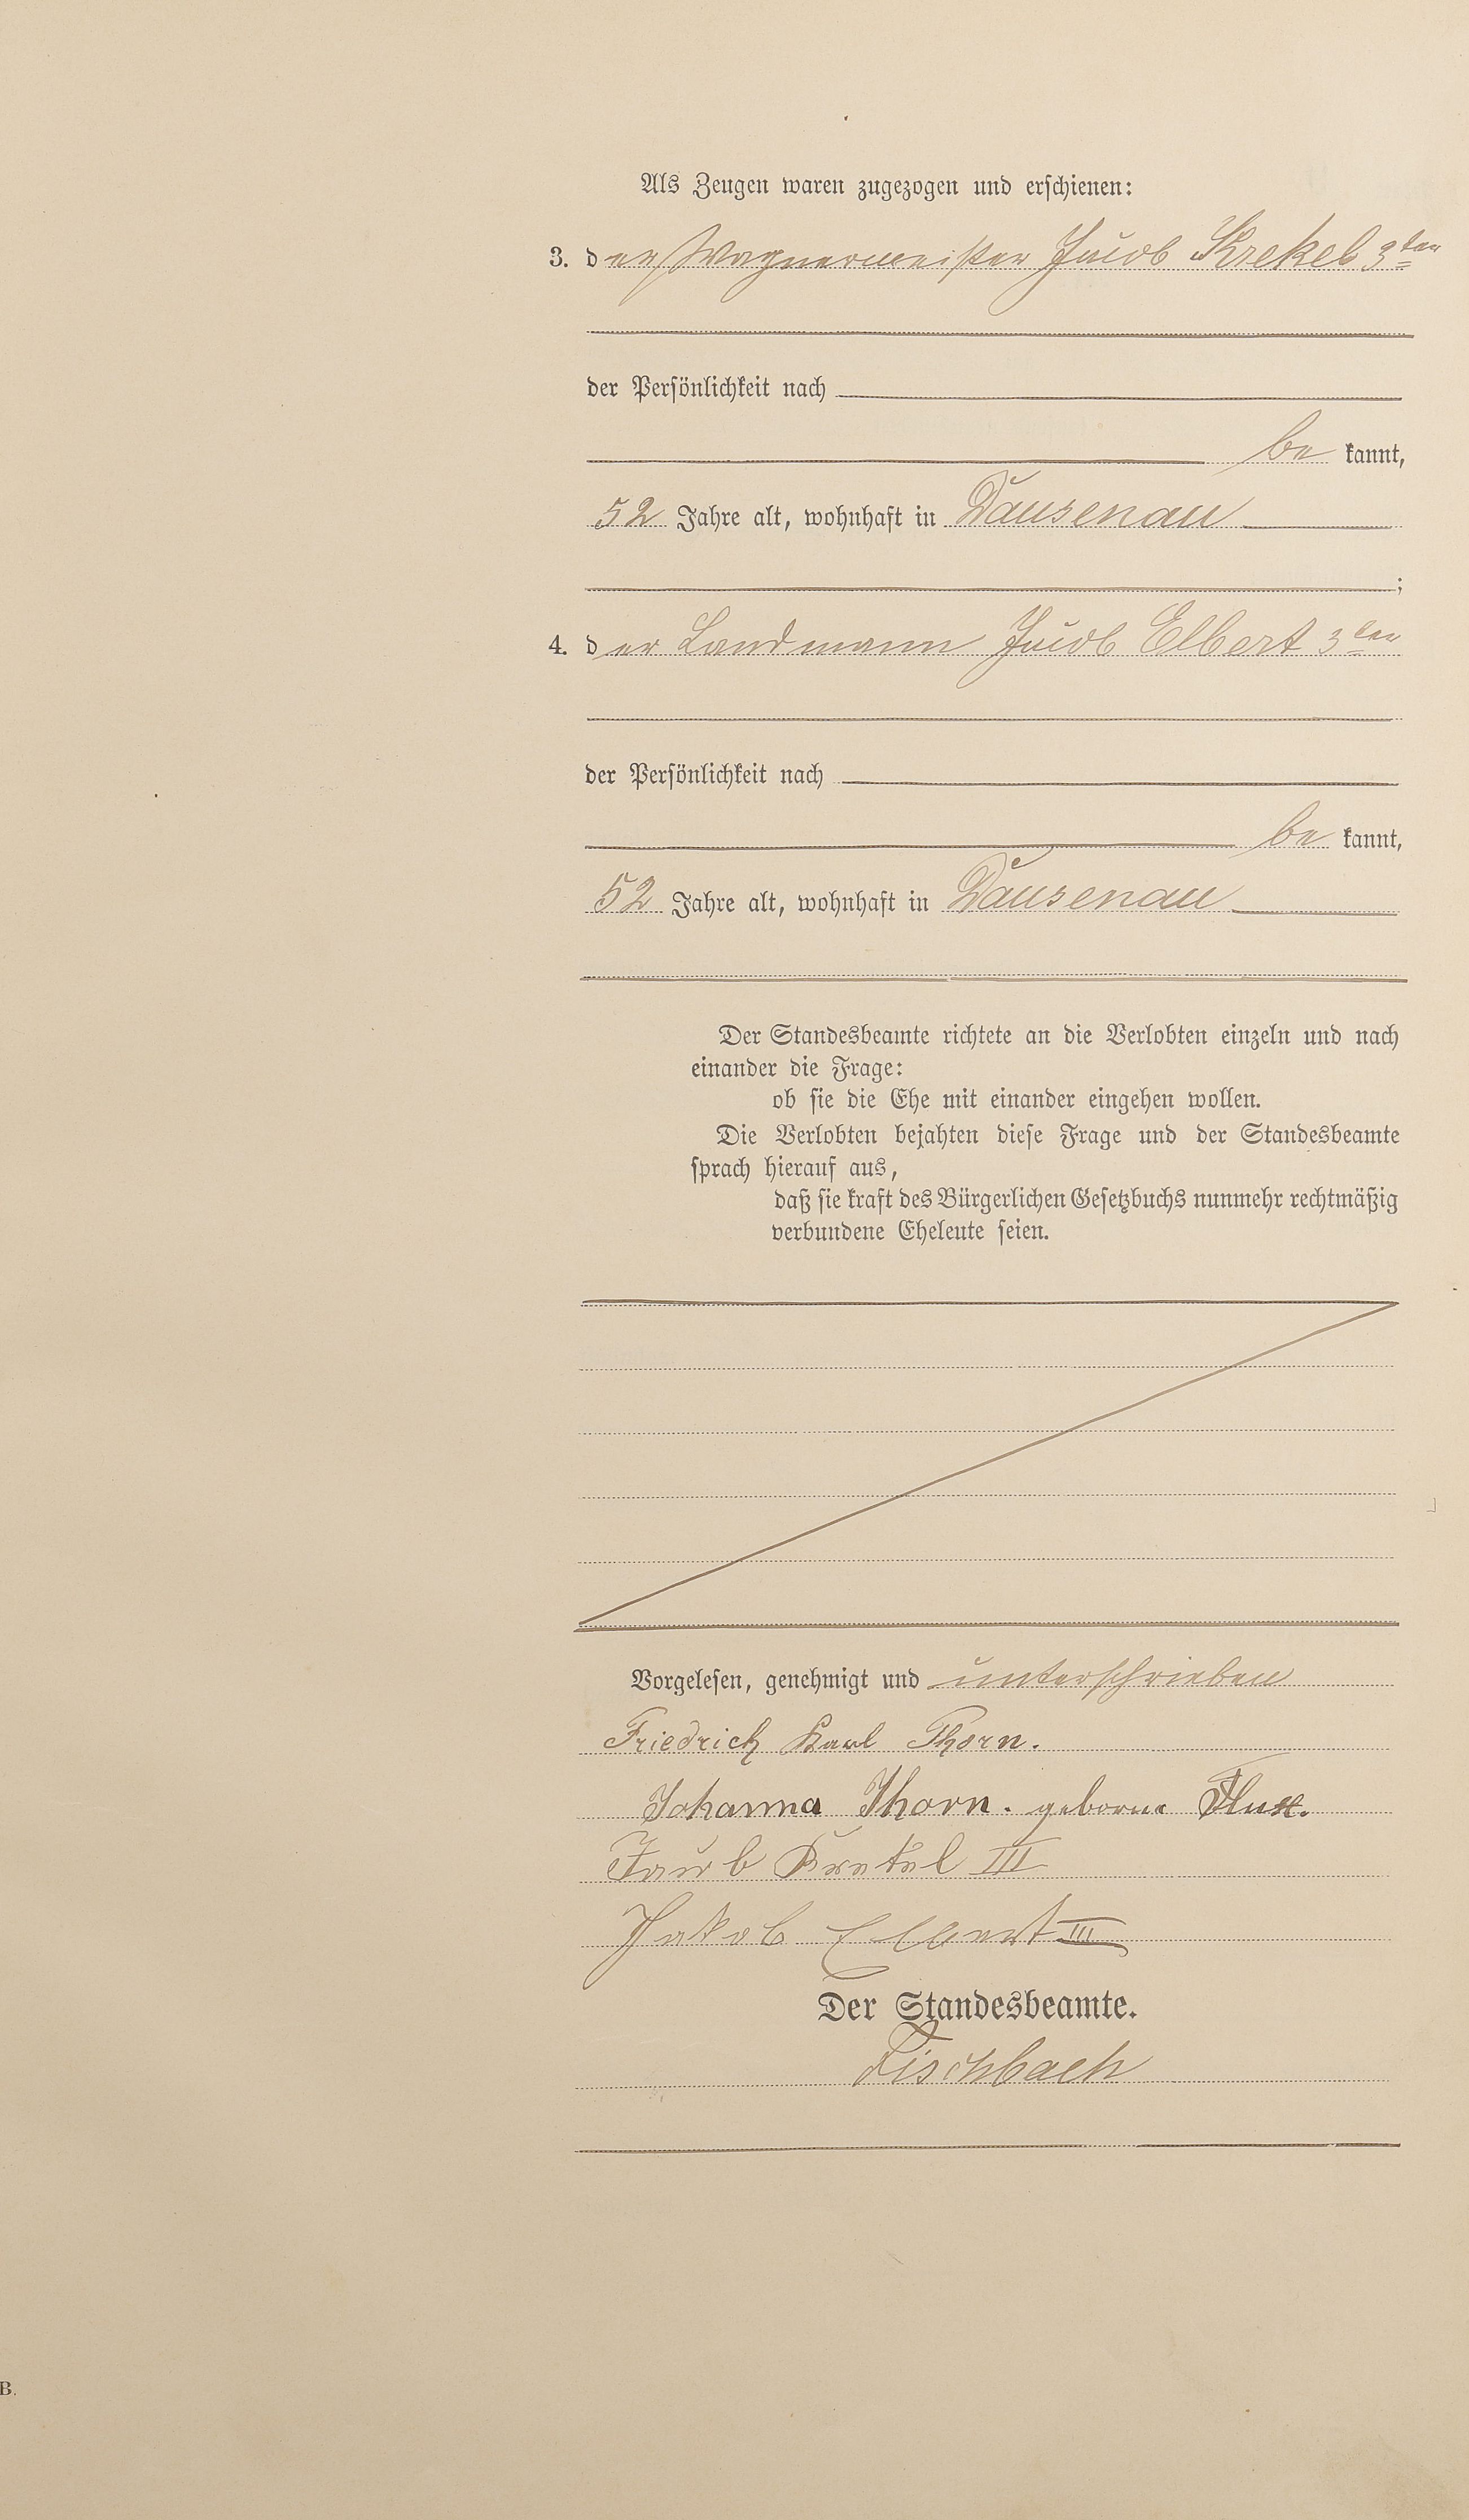 Als Zeugen waren zugezogen und erschienen:
3. der Wagnermeister Jacob Krekel 3ter
der Persönlichkeit nach
be kannt,
52 Jahre alt, wohnhaft in Dausenau
;
4. der Landmann Jacob Elbert 3ter
der Persönlichkeit nach
be kannt,
52 Jahre alt, wohnhaft in Dausenau
Der Standesbeamte richtete an die Verlobten einzeln und nach
einander die Frage:
ob sie die Ehe mit einander eingehen wollen.
Die Verlobten bejahten diese Frage und der Standesbeamte
sprach hierauf aus,
daß sie kraft des Bürgerlichen Gesetzbuchs nunmehr rechtmäßig
verbundene Eheleute seien.
Vorgelesen, genehmigt und unterschrieben
Friedrich Karl Thorn.
Johanna Thorn. geborne
Jacob Krekel III
Jakob Elbert III
Der Standesbeamte.
Fischbach
B.